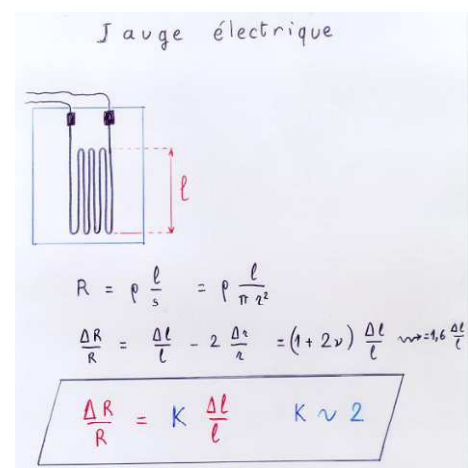 Jauge électrique
ℓ
R = ρ ℓ/s = ρ ℓ/π r²
ΔR/R = Δℓ/ℓ - 2 Δr/r = (1 + 2ν) Δℓ/ℓ ⇝ =1,6 Δℓ/ℓ
ΔR/R = K Δℓ/ℓ K ∼ 2